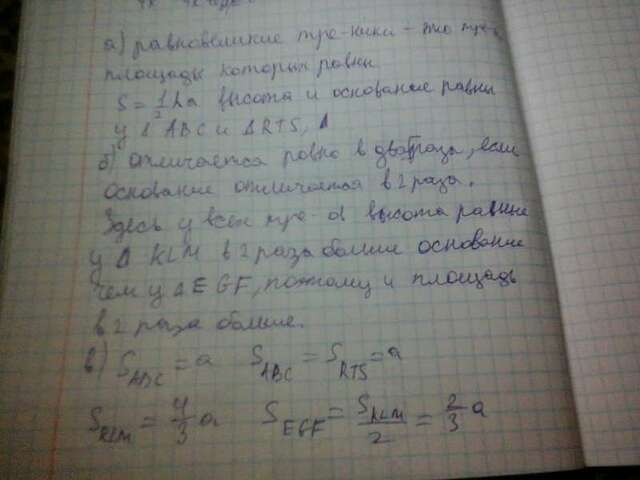 а) равновеликие тре-ники - это тре-
площады которых равны
S = 1/2 ha высота и основание равны
у Δ ABC и Δ RTS, Δ
б) отличается ровно в два раза, если
основание отличается в 2 раза.
Здесь у всех тре- высота равные
у Δ KLM в 2 раза больше основание
чем у Δ EGF, поэтому и площадь
в 2 раза больше.
в) S ABC = a S ABC = S RTS = a
S KLM = 4/3 a S EGF = S KLM / 2 = 2/3 a